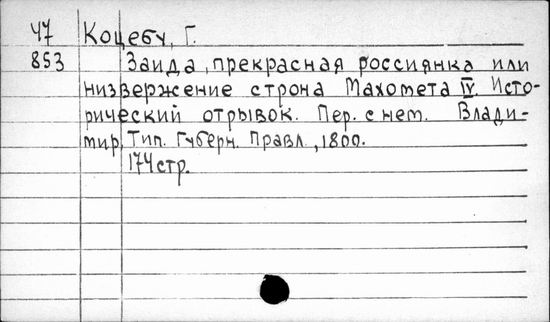 47 Коцебу, Г.
853 Заида, прекрасная россиянка или
низвержение строна Махомета IV. Исто-
рический отрывок. Пер. с нем. Влади-
мир, Тип. Губерн. Правл., 1800.
174 стр.